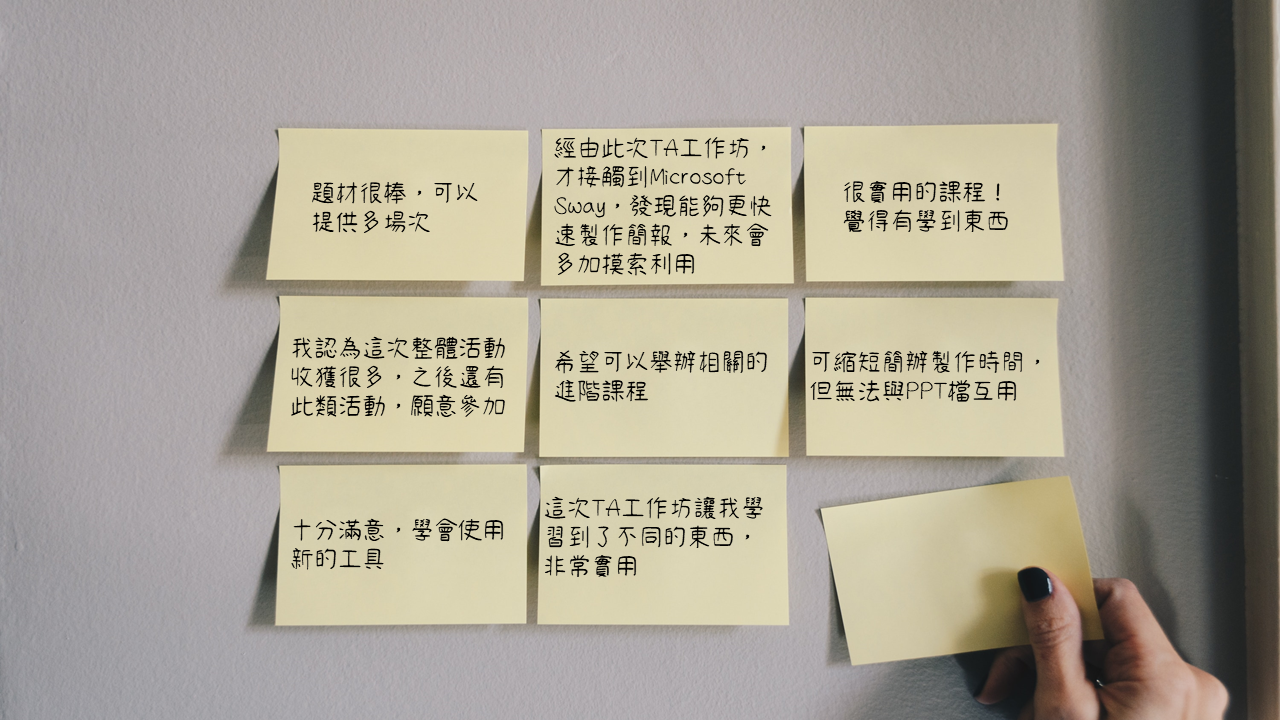 題材很棒，可以
提供多場次
經由此次TA工作坊，
才接觸到Microsoft
Sway，發現能夠更快
速製作簡報，未來會
多加摸索利用
很實用的課程！
覺得有學到東西
我認為這次整體活動
收獲很多，之後還有
此類活動，願意參加
希望可以舉辦相關的
進階課程
可縮短簡辦製作時間，
但無法與PPT檔互用
十分滿意，學會使用
新的工具
這次TA工作坊讓我學
習到了不同的東西，
非常實用